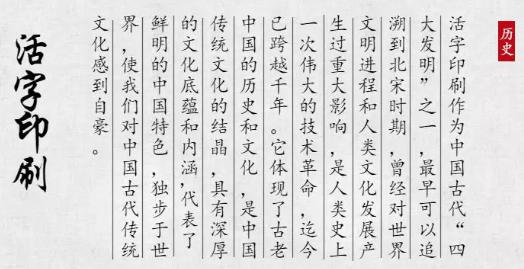 历史
活字印刷作为中国古代“四
大发明”之一,最早可以追
溯到北宋时期,曾经对世界
文明进程和人类文化发展产
生过重大影响,是人类史上
一次伟大的技术革命,迄今
已跨越千年。它体现了古老
中国的历史和文化,是中国
传统文化的结晶,具有深厚
的文化底蕴和内涵,代表了
鲜明的中国特色,独步于世
界,使我们对中国古代传统
文化感到自豪。
活字印刷